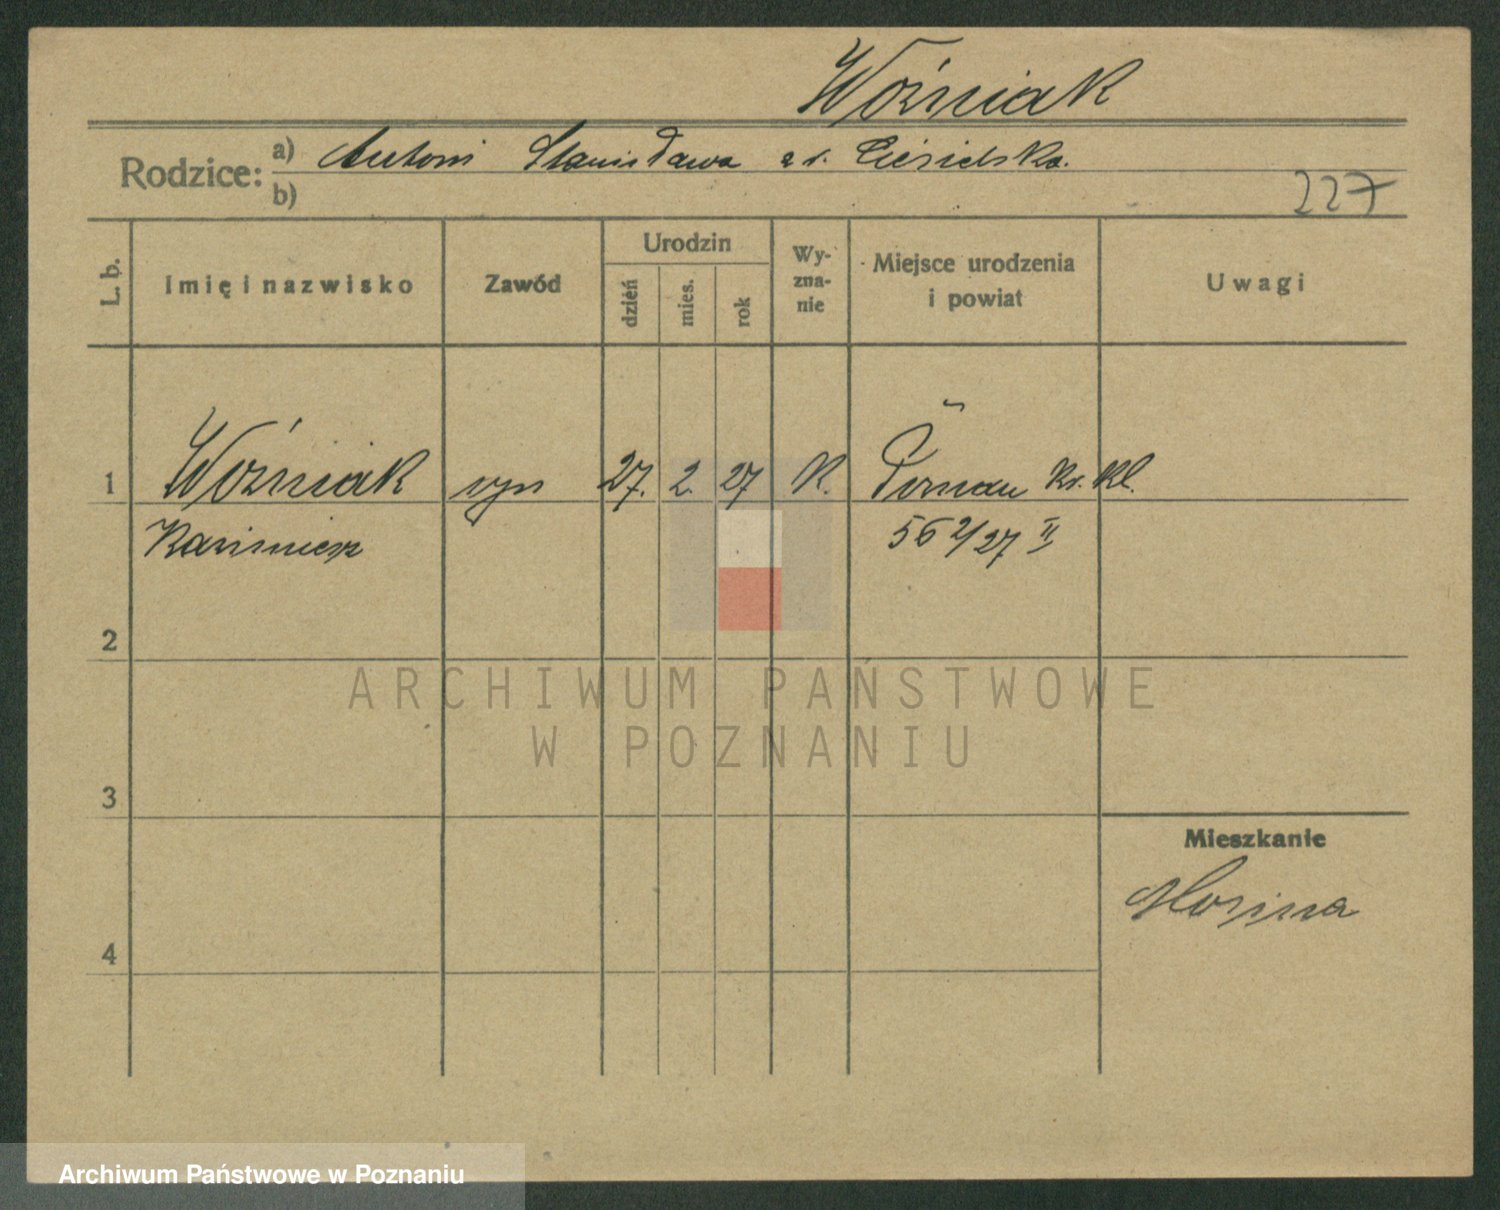 Woźniak
Rodzice: a) Antoni Stanisława z d. Ciesielska.
b)
227
L. b. Imię i nazwisko Zawód Urodzin dzień mies. rok Wyznanie Miejsce urodzenia i powiat Uwagi
1 Woźniak syn 27. 2. 27 K. Poznań
Kazimierz 562/27 II
2
ARCHIWUM PAŃSTWOWE
W POZNANIU
3
Mieszkanie
Mosina
4
Archiwum Państwowe w Poznaniu